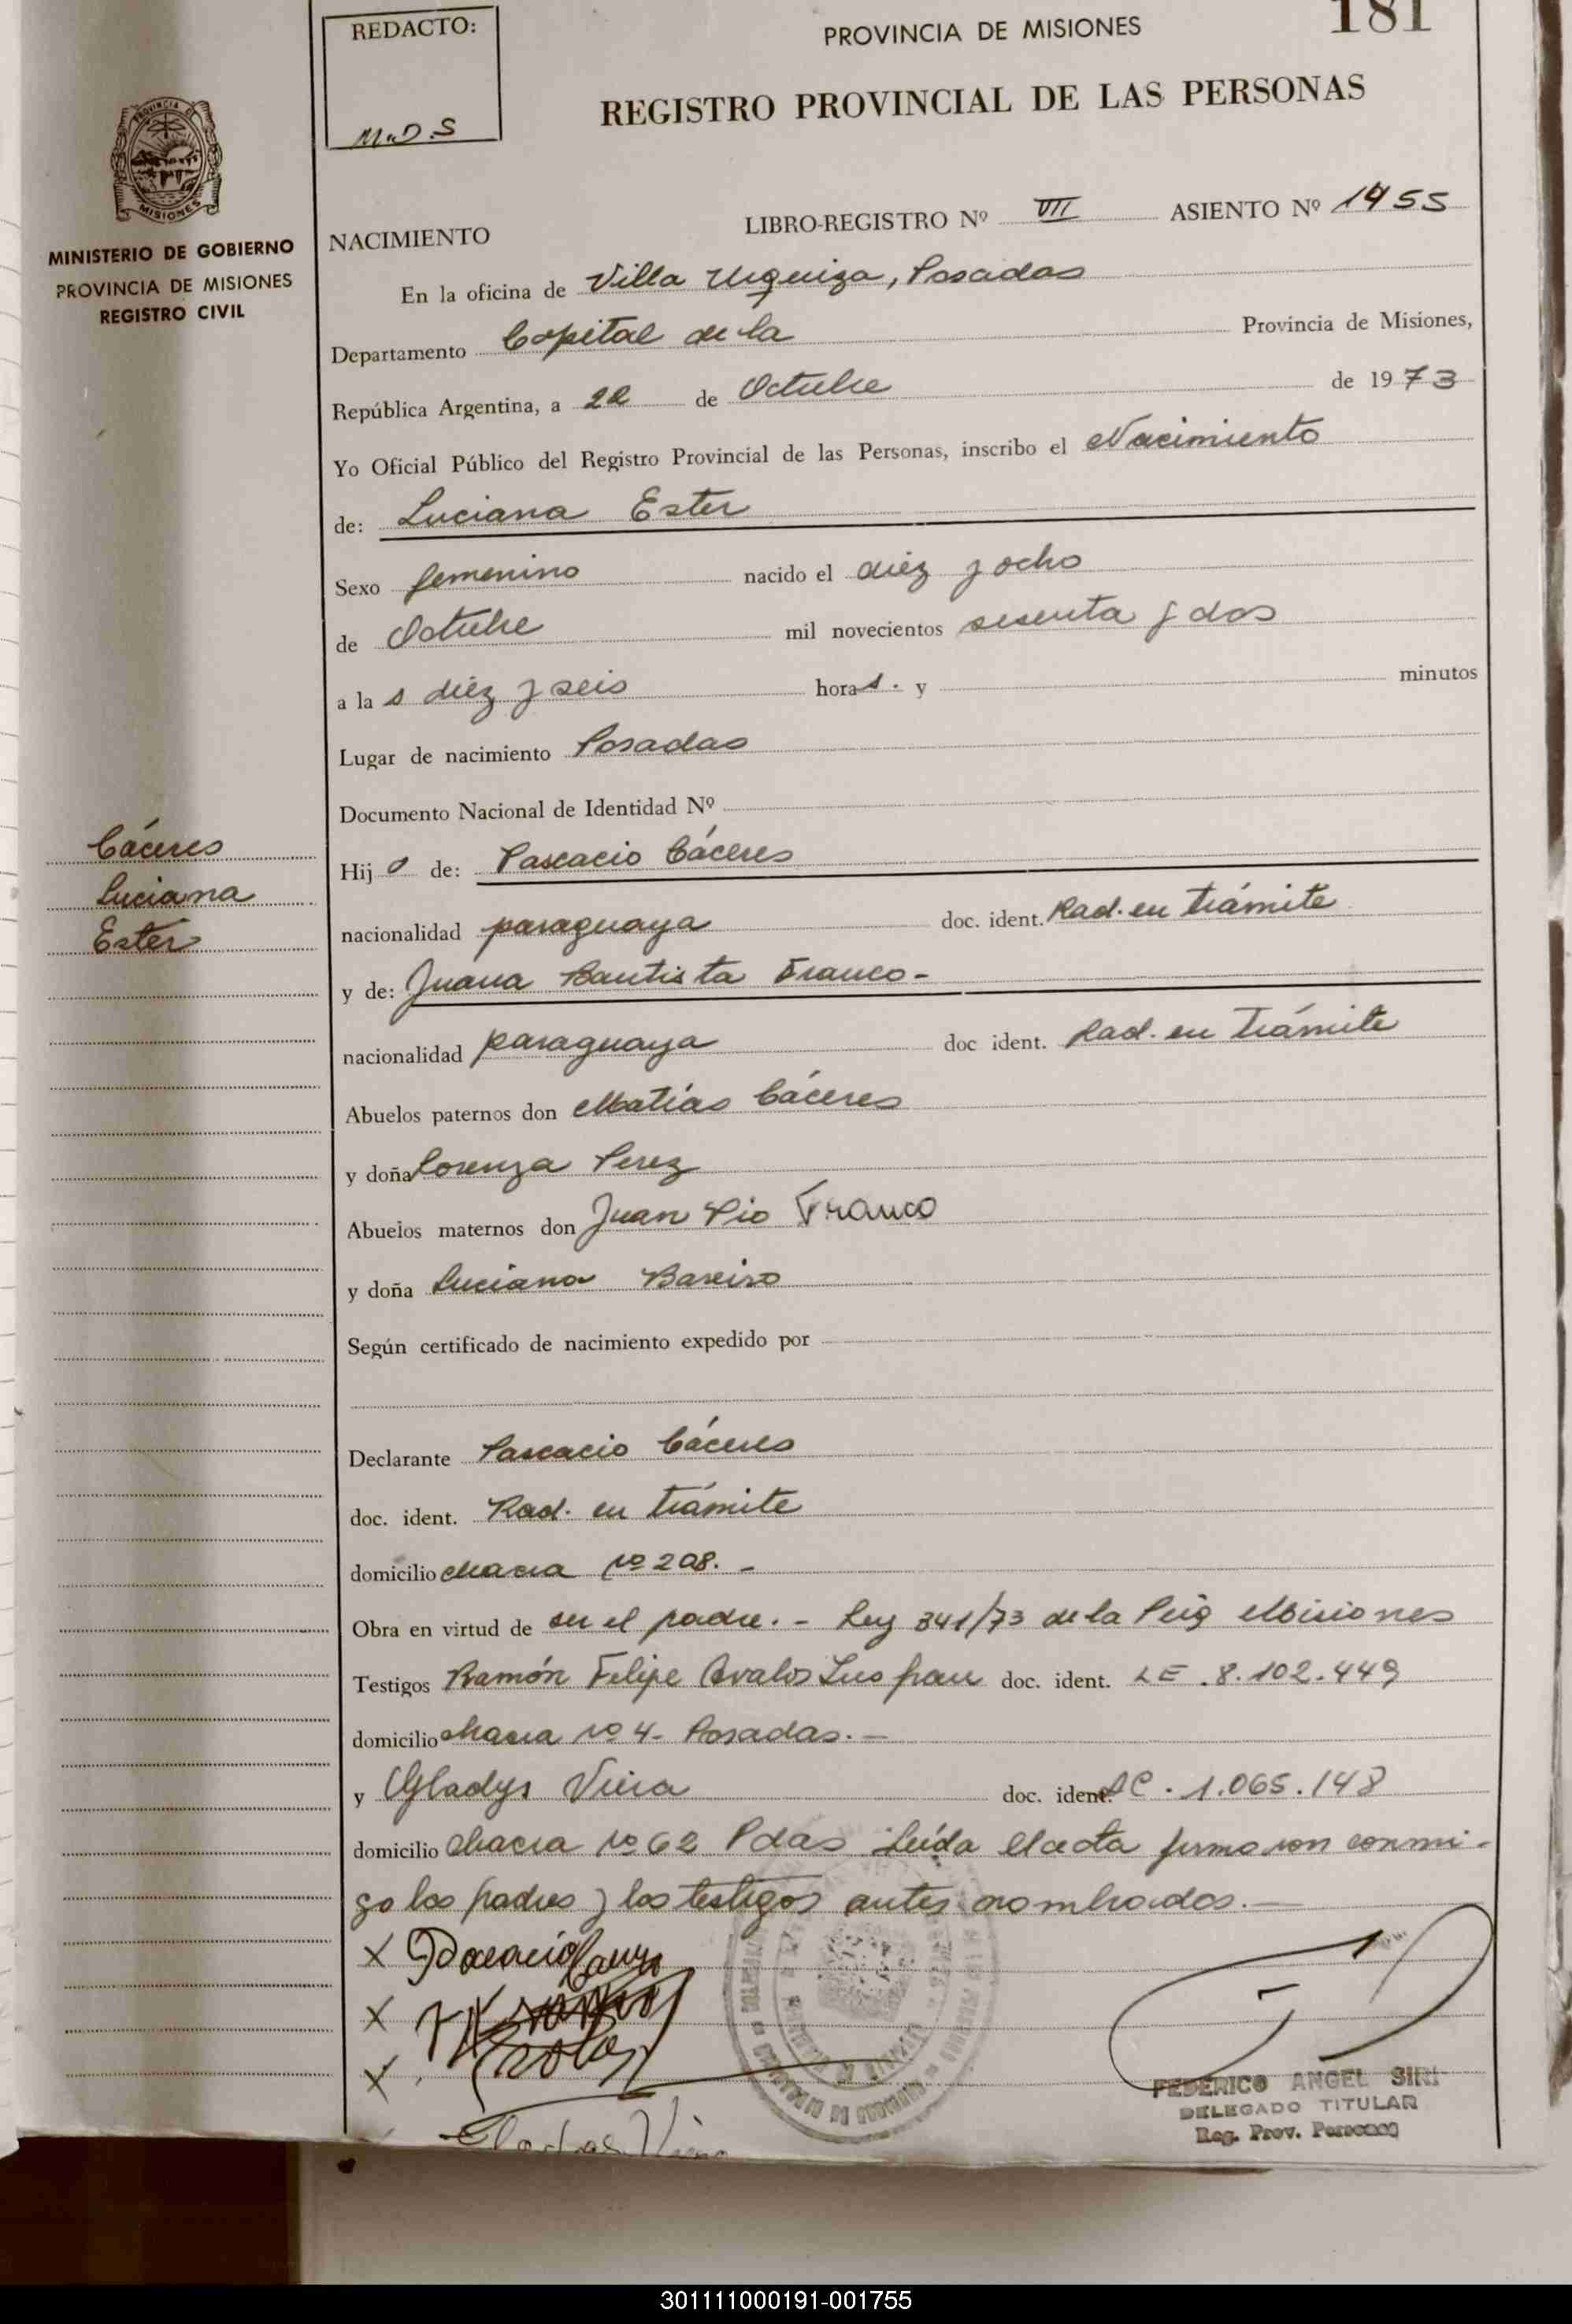 181
REDACTO:
M.D.S
PROVINCIA DE MISIONES
REGISTRO PROVINCIAL DE LAS PERSONAS
PROVINCIA DE
MISIONES
MINISTERIO DE GOBIERNO
PROVINCIA DE MISIONES
REGISTRO CIVIL
NACIMIENTO LIBRO-REGISTRO Nº VII ASIENTO Nº 1955
En la oficina de Villa Urquiza, Posadas
Departamento Capital de la Provincia de Misiones,
República Argentina, a 22 de Octubre de 1973
Yo Oficial Público del Registro Provincial de las Personas, inscribo el Nacimiento
de: Luciana Ester
Sexo femenino nacido el diéz y ocho
de Octubre mil novecientos sesenta y dos
a la s diéz y seis horas. y minutos
Lugar de nacimiento Posadas
Documento Nacional de Identidad Nº
Cáceres
Luciana
Ester
Hijo de: Pascacio Cáceres
nacionalidad paraguaya doc. ident. Rad. en trámite
y de: Juana Bautista Franco-
nacionalidad paraguaya doc ident. Rad. en trámite
Abuelos paternos don Matías Cáceres
y doña Lorenza Perez
Abuelos maternos don Juan Pio Franco
y doña Luciana Bareiro
Según certificado de nacimiento expedido por
Declarante Pascacio Cáceres
doc. ident. Rad. en trámite
domicilio chacra nº 208. -
Obra en virtud de ser el padre. - Ley 341/73 de la Misiones
Testigos Ramón Felipe Avalos doc. ident. LE .8.102.449
domicilio chacra nº 4- Posadas. —
y Gladys Viera doc. ident. LC. 1.065.148
domicilio chacra nº 62 Pdas Leída el acta firmaron conmi-
go los padres y los testigos antes nombrados. —
X
X
X
Gladys Viera
FEDERICO ANGEL SIRI
DELEGADO TITULAR
Reg. Prov. Personas
301111000191-001755